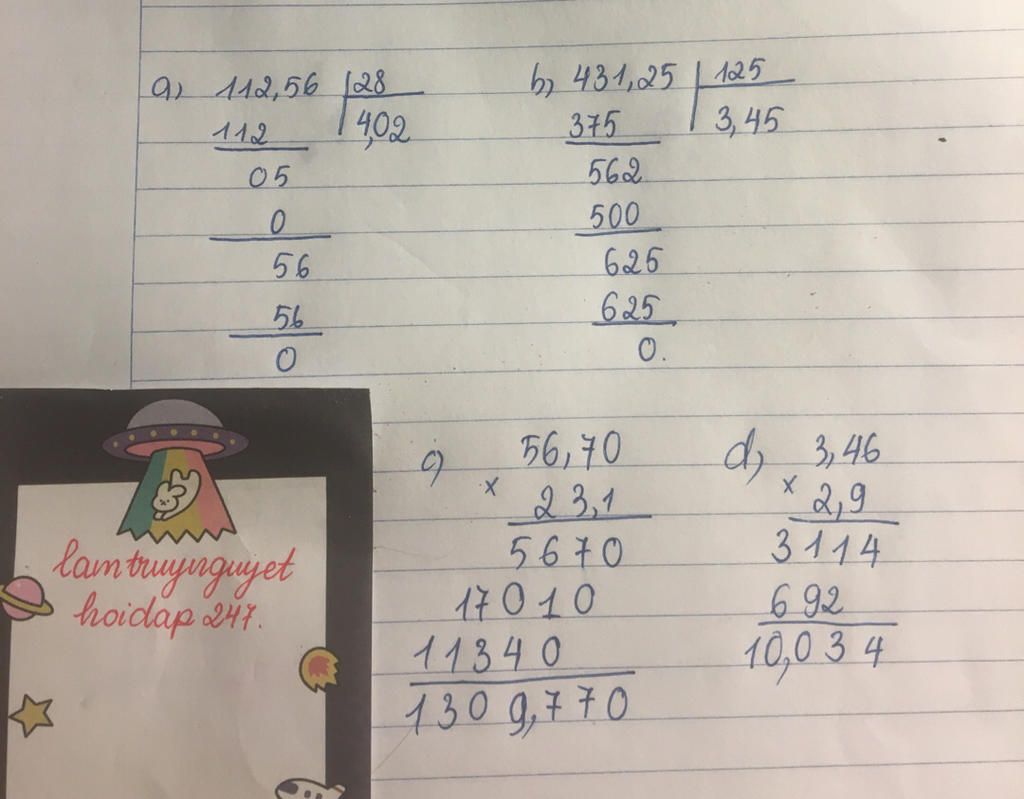 a, 112,56 28
112 4,02
05
0
56
56
0
b, 431,25 125
375 3,45
562
500
625
625
0.
c, 56,70
x 23,1
5670
17010
11340
1309,770
d, 3,46
x 2,9
3114
692
10,034
lamtruynguyet
hoidap 247.